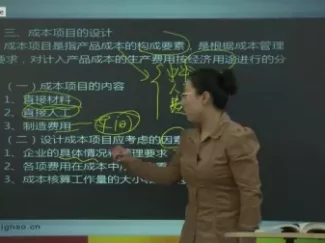 三、成本项目的设计
成本项目是指产品成本的构成要素，是根据成本管理
要求，对计入产品成本的生产费用按经济用途进行的分
（一）成本项目的内容
1、直接材料
2、直接人工
3、制造费用
（二）设计成本项目应考虑的因素
1、企业的具体情况 管理要求
2、各项费用在成本中
3、成本核算工作量的大小